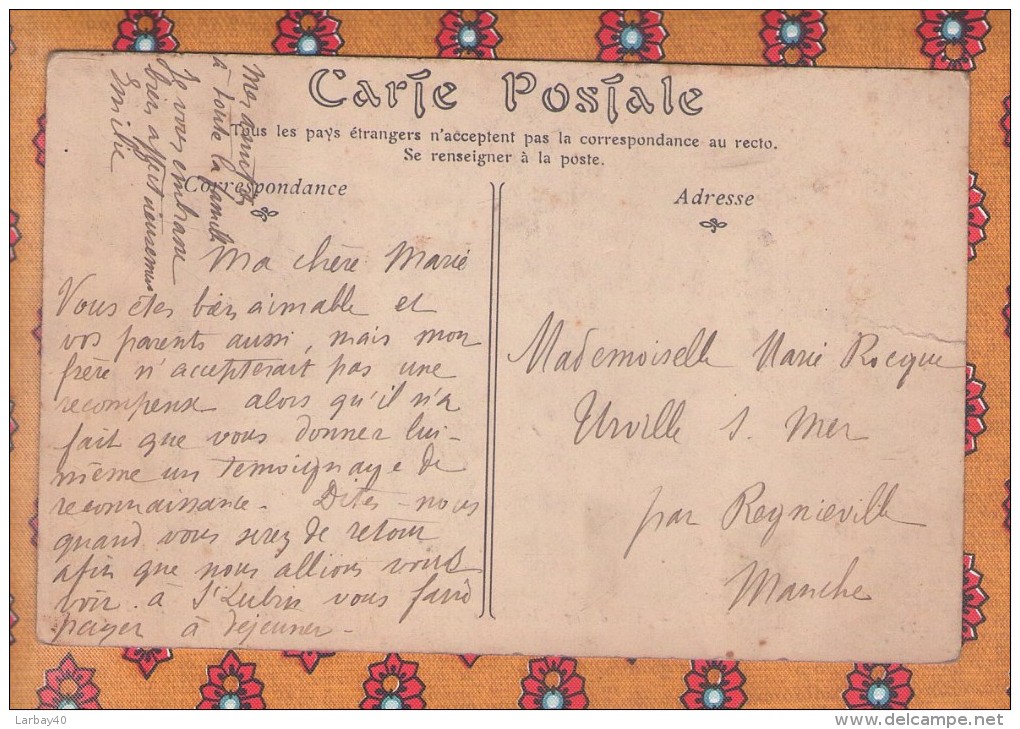 Carte Postale
Tous les pays étrangers n'acceptent pas la correspondance au recto.
Se renseigner à la poste.
Correspondance
Adresse
Mes amitiés
à toute la famille
Je vous embrasse
bien affectueusement
Emilie
Ma chère Marie
Vous êtes bien aimable et
vos parents aussi, mais mon
frère n'accepterait pas une
recompense alors qu'il n'a
fait que vous donner lui-
même un temoignage de
reconnaissance. Dites-nous
quand vous serez de retour
afin que nous allions vous
voir à St Lubin vous faire
payer à déjeuner -
Mademoiselle Marie Rocque
Urville s. Mer
par Regnieville
Manche
Larbay40
www.delcampe.net